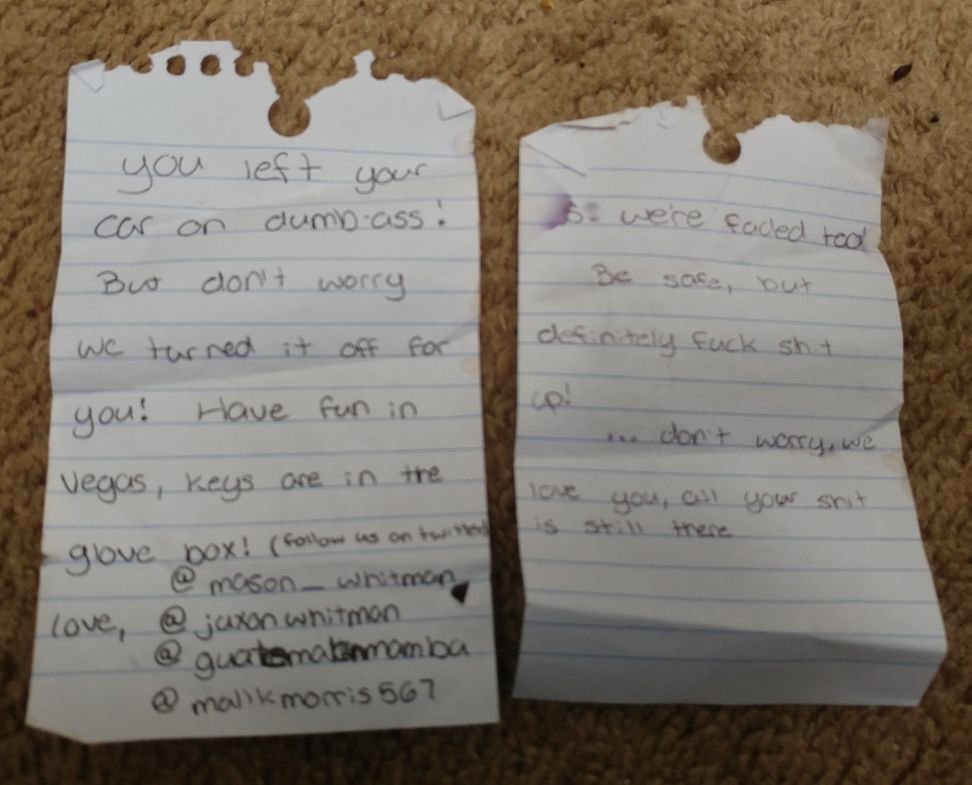 you left your
car on dumb-ass!
But don't worry
we turned it off for
you! Have fun in
Vegas, keys are in the
glove box! (follow us on twitter)
@ mason_whitman
love, @ jaxonwhitman
@ guatemalanmamba
@ malikmorris567
s: we're faded too!
Be safe, but
definitely fuck shit
up!
... don't worry, we
love you, all your shit
is still there